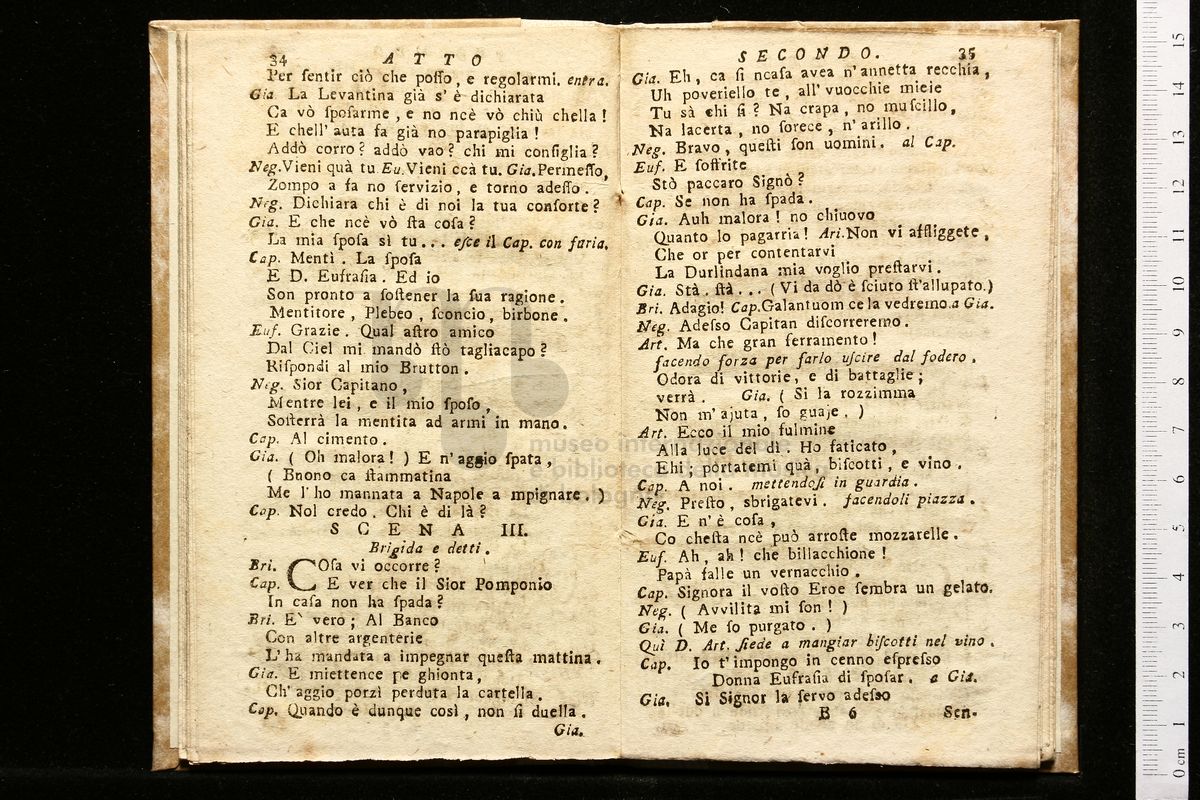 34 ATTO
Per ſentir ciò che poſſo, e regolarmi. entra.
Gia. La Levantina già s' è dichiarata
Ca vò ſpoſarme, e no ncè vò chiù chella!
E chell' auta fa già no parapiglia!
Addò corro? addò vao? chi mi conſiglia?
Neg. Vieni quà tu Eu. Vieni ccà tu. Gia. Permeſſo,
Zompo a fa no ſervizio, e torno adeſſo.
Neg. Dichiara chi è di noi la tua conſorte?
Gia. E che ncè vò ſta coſa?
La mia ſpoſa sì tu... eſce il Cap. con furia.
Cap. Mentì. La ſpoſa
E D. Eufraſia. Ed io
Son pronto a ſoſtener la ſua ragione.
Mentitore, Plebeo, ſconcio, birbone.
Euf. Grazie. Qual aſtro amico
Dal Ciel mi mandò ſtò tagliacapo?
Riſpondi al mio Brutton.
Neg. Sior Capitano,
Mentre lei, e il mio ſpoſo,
Soſterrà la mentita ad armi in mano.
Cap. Al cimento.
Gia. (Oh malora!) E n' aggio ſpata,
(Bnono ca ſtammatina
Me l' ho mannata a Napole a mpignare.)
Cap. Nol credo. Chi è di là?
SCENA III.
Brigida e detti.
Bri. COſa vi occorre?
Cap. E ver che il Sior Pomponio
In caſa non ha ſpada?
Bri. E` vero; Al Banco
Con altre argenterie
L' ha mandata a impegnar queſta mattina.
Gia. E miettence pe ghionta,
Ch' aggio porzì perduta la cartella.
Cap. Quando è dunque così, non ſi duella.
Gia.
SECONDO. 35
Gia. Eh, ca ſi ncaſa avea n' annetta recchia,
Uh poveriello te, all' vuocchie mieie
Tu sà chi ſi? Na crapa, no muſcillo,
Na lacerta, no ſorece, n' arillo.
Neg. Bravo, queſti ſon uomini. al Cap.
Euf. E ſoffrite
Stò paccaro Signò?
Cap. Se non ha ſpada.
Gia. Auh malora! no chiuovo
Quanto lo pagarria! Ari. Non vi affliggete,
Che or per contentarvi
La Durlindana mia voglio preſtarvi.
Gia. Stà, ſtà... (Vi da dò è ſciuto ſt' allupato.)
Bri. Adagio! Cap. Galantuom ce la vedremo. a Gia.
Neg. Adeſso Capitan diſcorreremo.
Art. Ma che gran ferramento!
facendo forza per farlo uſcire dal fodero.
Odora di vittorie, e di battaglie;
verrà. Gia. (Si la rozzimma
Non m' ajuta, ſo guaje.)
Art. Ecco il mio fulmine
Alla luce del dì. Ho faticato,
Ehi; portatemi quà, biſcotti, e vino.
Cap. A noi. mettendoſi in guardia.
Neg. Preſto, sbrigatevi. facendoli piazza.
Gia. E n' è coſa,
Co cheſta ncè può arroſte mozzarelle.
Euf. Ah, ah! che billacchione!
Papà falle un vernacchio.
Cap. Signora il voſto Eroe ſembra un gelato.
Neg. (Avvilita mi ſon!)
Gia. (Me ſo purgato.)
Quì D. Art. ſiede a mangiar biſcotti nel vino.
Cap. Io t' impongo in cenno eſpreſſo
Donna Eufraſia di ſpoſar. a Gia.
Gia. Si Signor la ſervo adeſso
B 6 Scn-
museo internazionale
e biblioteca della musica
di bologna
0 cm 1 2 3 4 5 6 7 8 9 10 11 12 13 14 15